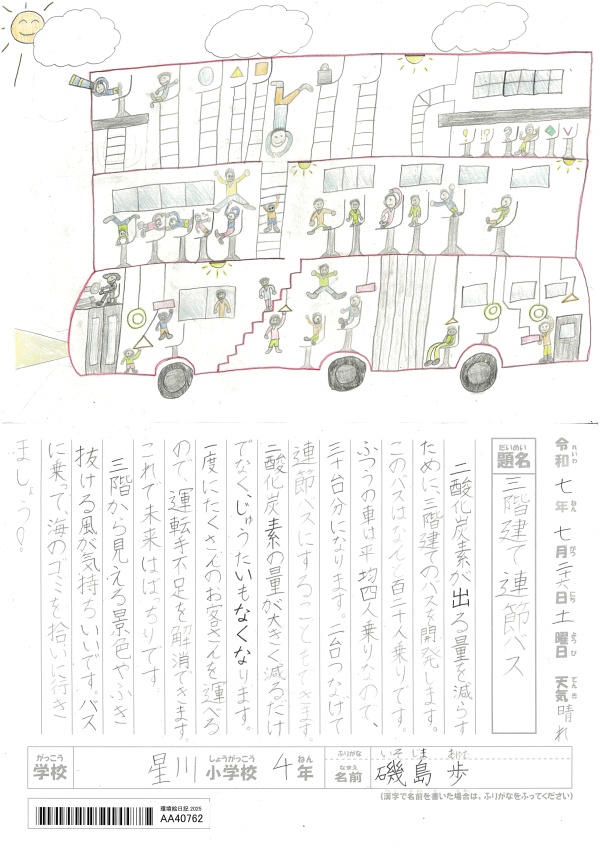 令和 七年 七月 二十六日 土曜日 天気 晴れ
れいわ ねん がつ にち ようび てんき
だいめい
題名
三階建て連節バス
二酸化炭素が出る量を減らす
ために、三階建てのバスを開発します。
このバスはなんと百二十人乗りです。
ふつうの車は平均四人乗りなので、
三十台分になります。二台つなげて
連節バスにすることとします。
二酸化炭素の量が大きく減るだけ
でなく、じゅうたいもなくなります。
一度にたくさんのお客さんを運べる
ので、運転手不足を解消できます。
これで未来はばっちりです。
三階から見える景色やふき
抜ける風が気持ちいいです。バス
に乗って、海のゴミを拾いに行き
ましょう!
がっこう しょうがっこう ねん
学校 星川 小学校 4年
ふりがな いそ じま あゆむ
なまえ
名前 磯島 歩
(漢字で名前を書いた場合は、ふりがなをふってください)
環境絵日記 2025
AA40762